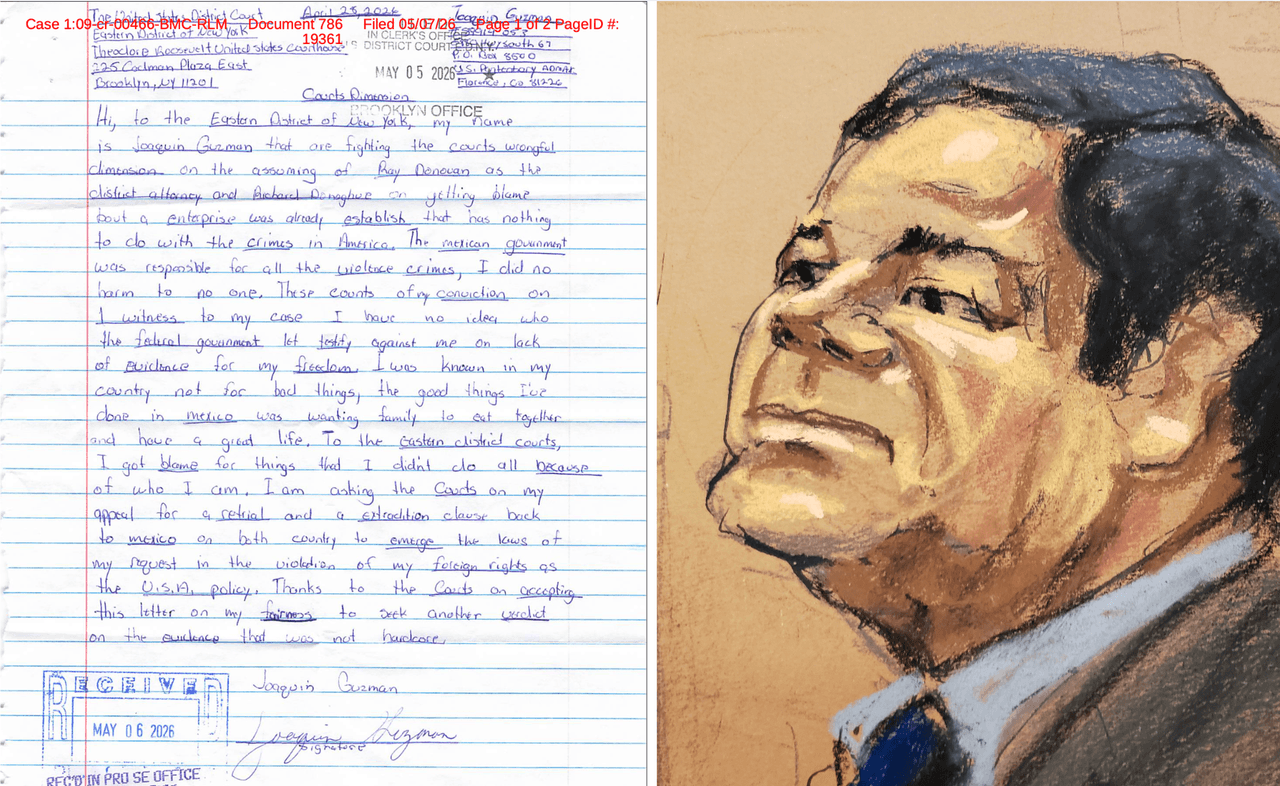 Case 1:09-cr-00466-BMC-RLM Document 786 Filed 05/07/26 Page 1 of 2 PageID #:
19361
The United States District Court April 28, 2026 Joaquin Guzman
Eastern District of New York
Theodore Roosevelt United States Courthouse
225 Cadman Plaza East
Brooklyn, NY 11201
IN CLERK'S OFFICE
DISTRICT COURT
MAY 05 2026
BROOKLYN OFFICE
South 67
P.O. Box 8500
U.S. Penitentiary ADMAX
Florence, Co 81226
Courts Dimension
Hi, to the Eastern District of New York, my name
is Joaquin Guzman that are fighting the courts wrongful
dimension on the assuming of Ray Donovan as the
district attorney and Richard Donoghue on getting blame
bout a enterprise was already establish that has nothing
to do with the crimes in America. The mexican government
was responsible for all the violence crimes, I did no
harm to no one. These counts of my conviction on
1 witness to my case I have no idea who
the federal government let testify against me on lack
of evidence for my freedom I was known in my
country not for bad things, the good things I've
done in mexico was wanting family to eat together
and have a great life. To the Eastern district courts,
I got blame for things that I didn't do all because
of who I am. I am asking the Courts on my
appeal for a retrial and a extradition clause back
to mexico on both country to emerge the laws of
my request in the violation of my foreign rights as
the U.S.A. policy. Thanks to the Courts on accepting
this letter on my fairness to seek another verdict
on the evidence that was not hardcore.
Joaquin Guzman
Joaquin Guzman
Signature
RECEIVED
MAY 06 2026
REC'D IN PRO SE OFFICE